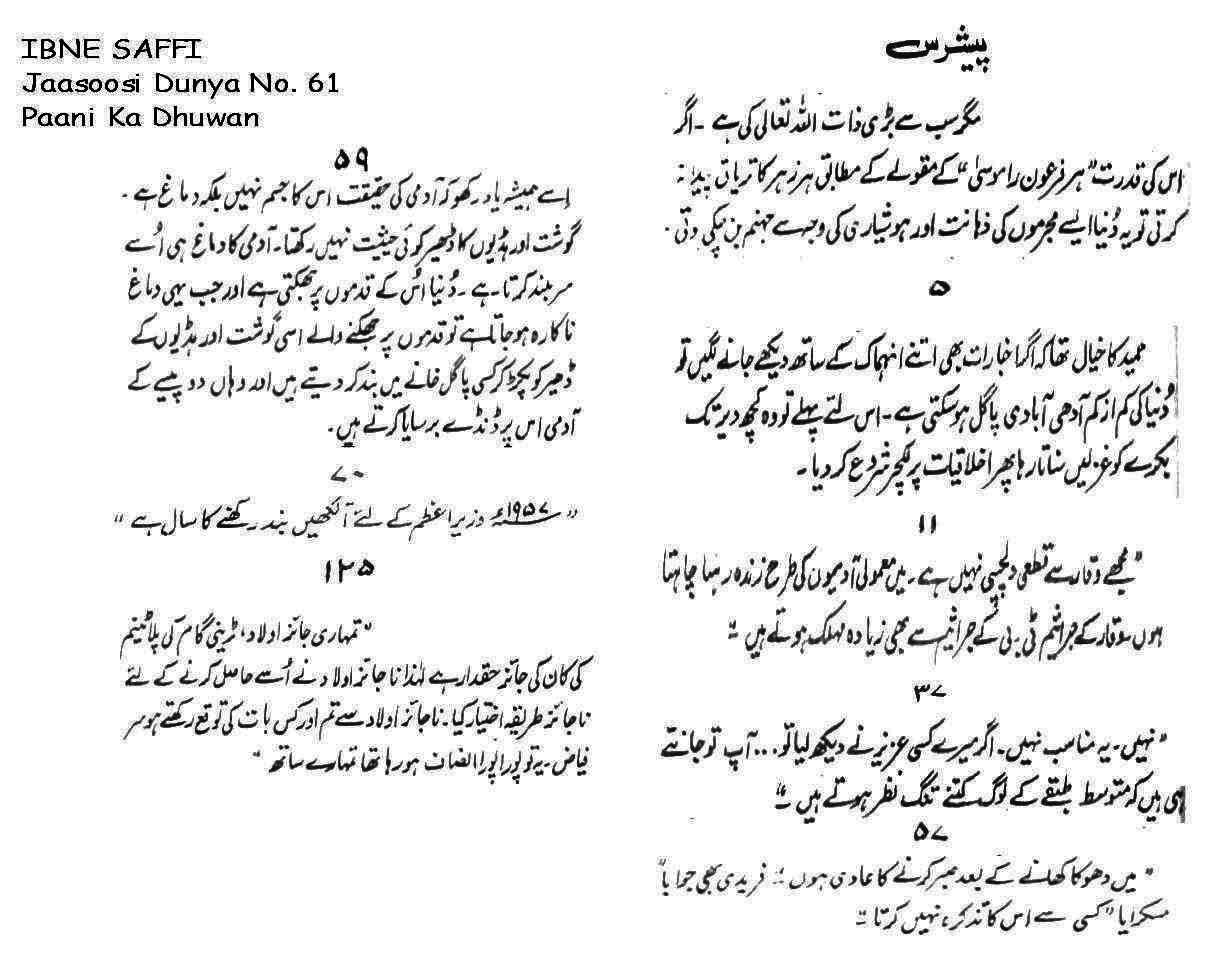 IBNE SAFFI
Jaasoosi Dunya No. 61
Paani Ka Dhuwan
پیشرس
مگر سب سے بڑی ذات اللہ تعالی کی ہے ۔ اگر
اس کی قدرت "ہر فرعون را موسیٰ" کے مقولے کے مطابق ہر زہر کا تریاق پیدا نہ
کرتی تو یہ دُنیا ایسے مجرموں کی ذہانت اور ہوشیاری کی وجہ سے جہنم بن چکی ہوتی ۔
۵
حمید کا خیال تھا کہ اگر اخبارات بھی اتنے انہماک کے ساتھ دیکھے جانے لگیں تو
دُنیا کی کم از کم آدھی آبادی پاگل ہوسکتی ہے ۔ اس لئے پہلے تو وہ کچھ دیر تک
بکرے کو غزلیں سناتا رہا پھر اخلاقیات پر لکچر شروع کر دیا ۔
۱۱
"مجھے وقار سے قطعی دلچسپی نہیں ہے ۔ میں معمولی آدمیوں کی طرح زندہ رہنا چاہتا
ہوں سو وقار کے جراثیم ٹی ۔ بی کے جراثیم سے بھی زیادہ مہلک ہوتے ہیں ۔"
۳۷
"نہیں ۔ یہ مناسب نہیں ۔ اگر میرے کسی عزیز نے دیکھ لیا تو ... آپ تو جانتے
ہی ہیں کہ متوسط طبقے کے لوگ کتنے تنگ نظر ہوتے ہیں ۔"
۵۷
"میں دھوکا کھانے کے بعد صبر کرنے کا عادی ہوں ۔" فریدی بھی جوابا"
مسکرایا "کسی سے اس کا تذکرہ نہیں کرتا ۔"
۵۹
اِسے ہمیشہ یاد رکھو کہ آدمی کی حقیقت اس کا جسم نہیں بلکہ دماغ ہے ۔
گوشت اور ہڈیوں کا ڈھیر کوئی حیثیت نہیں رکھتا ۔ آدمی کا دماغ ہی اُسے
سر بلند کرتا ہے ۔ دُنیا اُس کے قدموں پر جھکتی ہے اور جب یہی دماغ
ناکارہ ہو جاتا ہے تو قدموں پر جھکنے والے اسی گوشت اور ہڈیوں کے
ڈھیر کو پکڑ کر کسی پاگل خانے میں بند کر دیتے ہیں اور وہاں دو پیسے کے
آدمی اس پر ڈنڈے برسایا کرتے ہیں ۔
۷۰
"۱۹۵۷ء وزیر اعظم کے لئے آنکھیں بند رکھنے کا سال ہے"
۱۲۵
"تمہاری جائز اولاد، ٹرینی گام کی پلاٹینم
کی کان کی جائز حقدار ہے لہٰذا ناجائز اولاد نے اُسے حاصل کرنے کے لئے
ناجائز طریقہ اختیار کیا ۔ ناجائز اولاد سے تم اور کس بات کی توقع رکھتے ہو سر
فیاض ۔ یہ تو پورا پورا انصاف ہو رہا تھا تمہارے ساتھ"